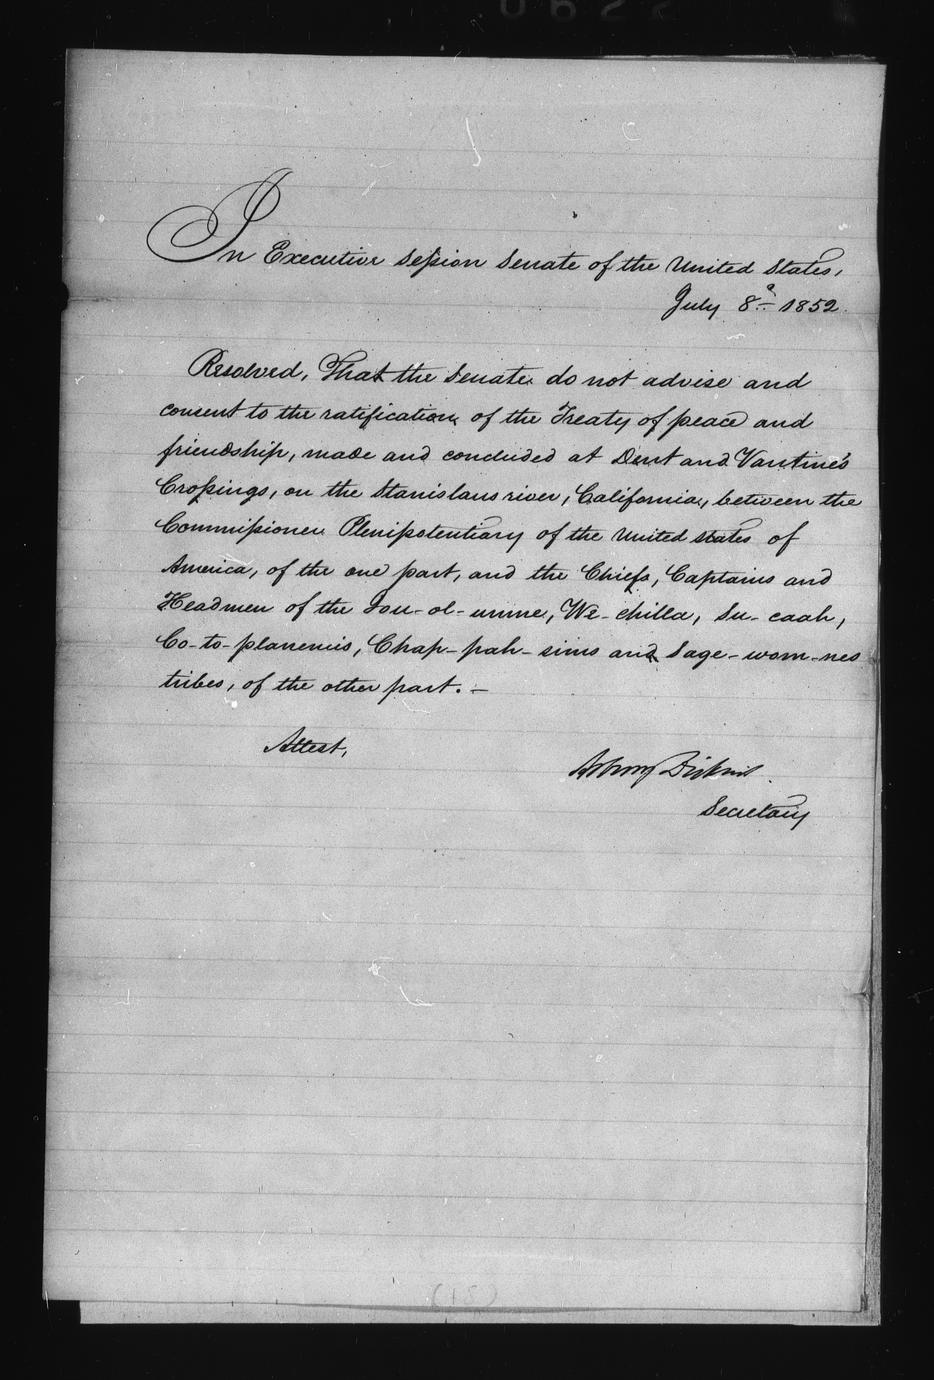 In Executive Session Senate of the United States,
July 8th 1852.
Resolved, That the Senate do not advise and
consent to the ratification of the Treaty of peace and
friendship, made and concluded at Dent and Vantine's
Crossings, on the Stanislaus river, California, between the
Commissioner Plenipotentiary of the United States of
America, of the one part, and the Chiefs, Captains and
Headmen of the Iou-ol-umne, We-chilla, Su-caah,
Co-to-planemis, Chap-pah-sims and Sage-wom-nes
tribes, of the other part. —
Attest,
Asbury Dickins
Secretary
(18)